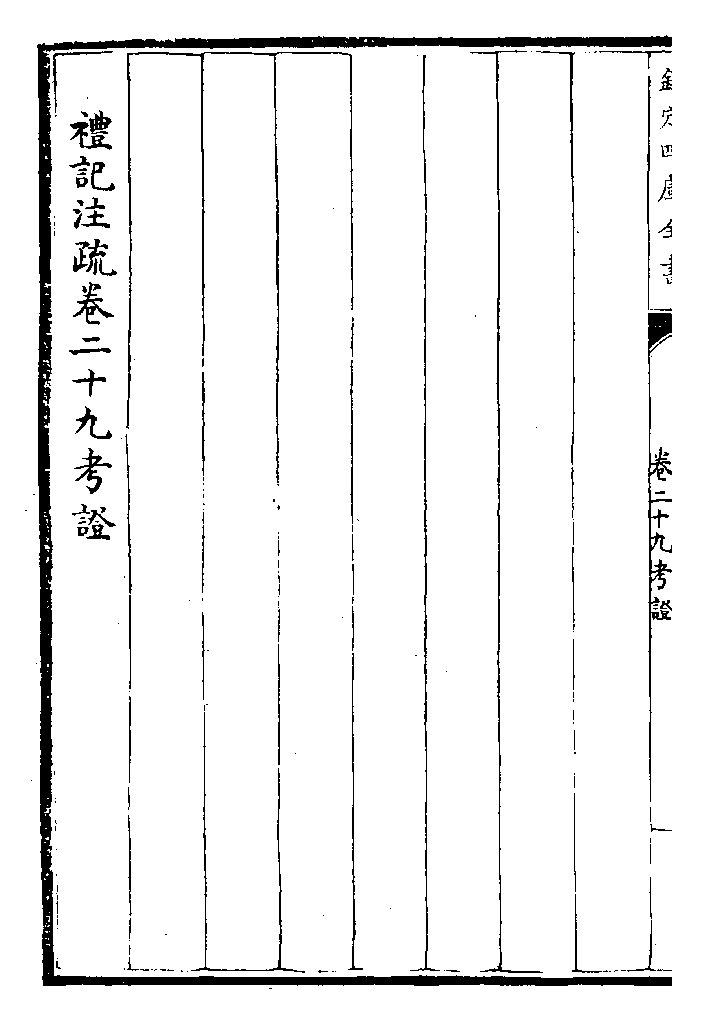 欽定四庫全書
卷二十九考證
禮記注疏卷二十九考證